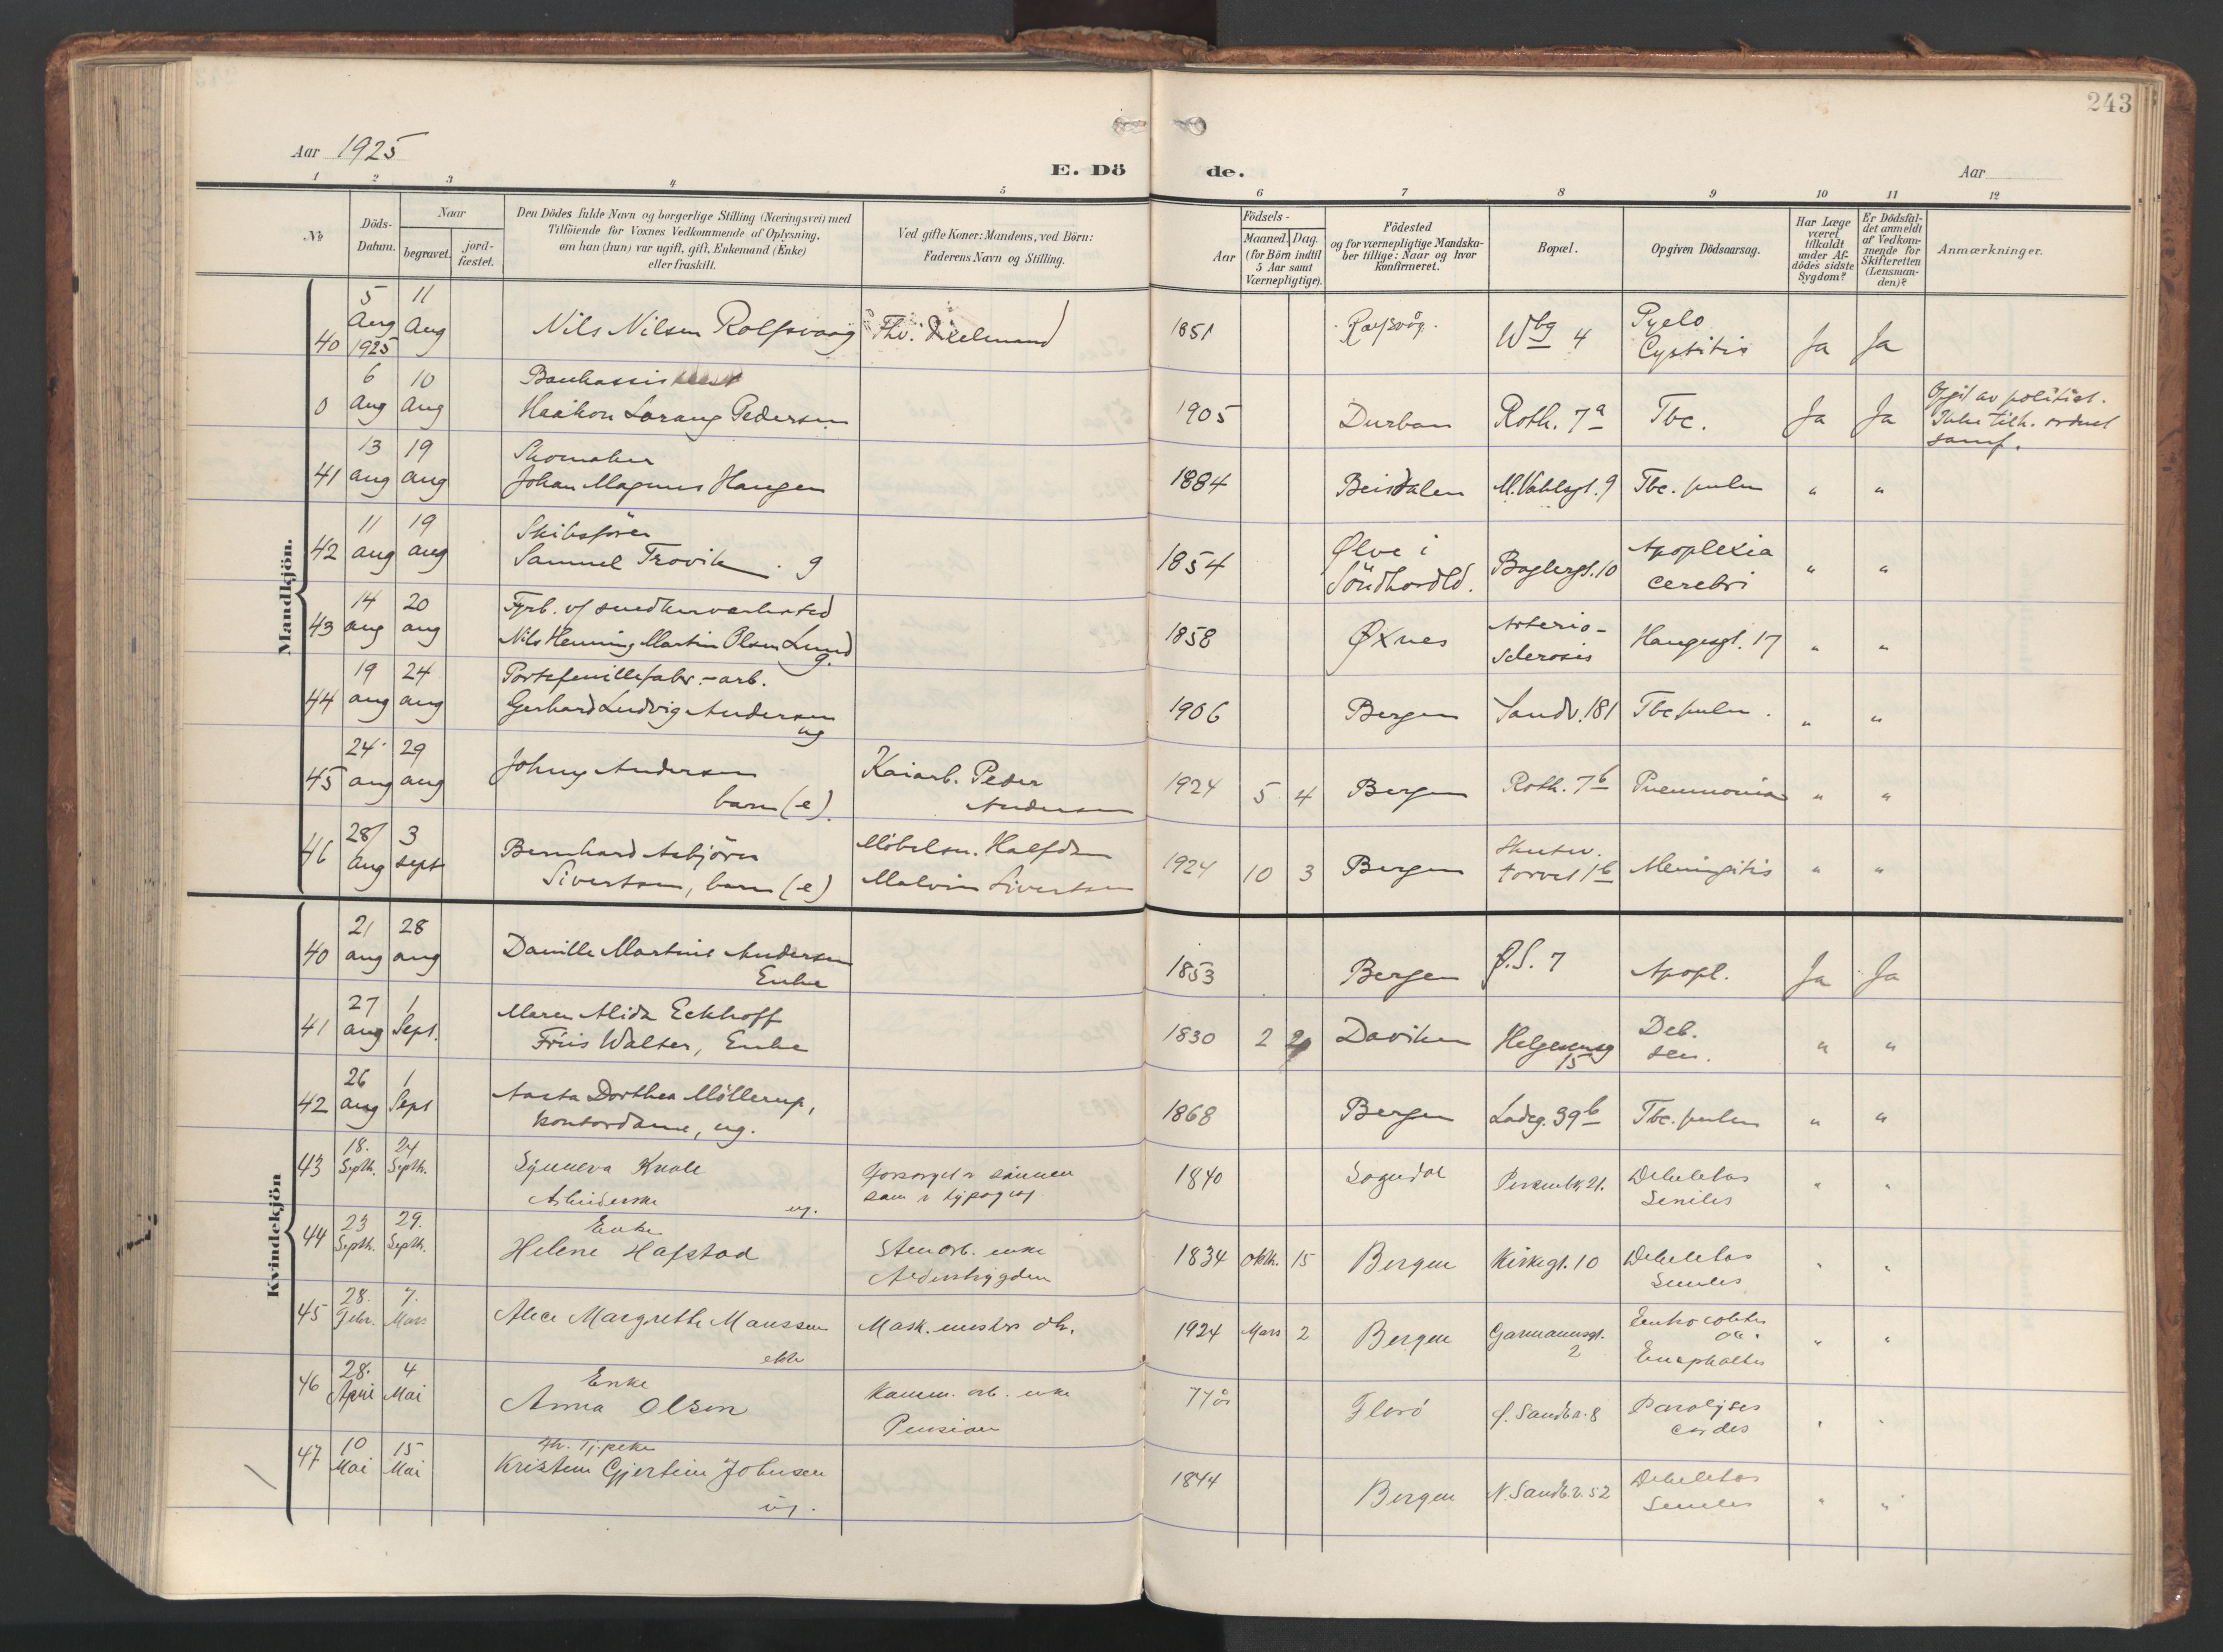 243
Aar 1925
E. Dö
de.
Aar
1 2 3 4 5 6 7 8 9 10 11 12
№
Döds-
Datum.
Naar
begravet.
jord-
fæstet.
Den Dödes fulde Navn og borgerlige Stilling (Næringsvei) med
Tilföiende for Voxnes Vedkommende af Oplysning,
om han (hun) var ugift, gift, Enkemand (Enke)
eller fraskilt.
Ved gifte Koner: Mandens, ved Börn:
Faderens Navn og Stilling.
Födsels-
Aar
Maaned. Dag.
(for Börn indtil
5 Aar samt
Værnepligtige).
Födested
og for værnepligtige Mandska-
ber tillige: Naar og hvor
konfirmeret.
Bopæl.
Opgiven Dödsaarsag.
Har Læge
været
tilkaldt
under Af-
dödes sidste
Sygdom?
Er Dödsfal-
det anmeldt
af Vedkom-
mende for
Skifteretten
(Lensman-
den)?
Anmærkninger.
Mandkjön.
40 5 Aug 1925 11 Aug Nils Nilsen Rolfsvaag 1851 Wbg 4 Pyelo Cystitis Ja Ja
0 6 Aug 10 Aug Haakon Lorang Pedersen 1905 Durban Roth. 7a Tbc. Ja Ja Opgit av politiet.
41 13 aug 19 aug Skomaker
Johan Magnus Haugen 1884 Beisdalen M. Vahlsgt. 9 Tbc. pulm " "
42 11 aug 19 aug Skibsförer
Samuel Trovik. g 1854 Ølve i Söndhordld. Baglergt. 10 Apoplexia cerebri " "
43 14 aug 20 aug
Nils Henning Martin Olsen Lund g. 1858 Øxnes Arterio-sclerosis Haugesgt. 17 " "
44 19 aug 24 aug Portefeuillefabr.-arb.
Gerhard Ludvig Andersen ug 1906 Bergen Sandv. 181 Tbc pulm. " "
45 24 aug 29 aug Johny Andersen
barn (e). Kaiarb. Peder Andersen 1924 5 4 Bergen Roth. 7b Pneumonia " "
46 28 Aug 3 sept Bernhard Asbjörn
Sivertsen, barn (e) Möbelsn. Halfdan Malvin Sivertsen 1924 10 3 Bergen torvet 1b Meningitis " "
Kvindekjön
40 21 aug 28 aug Danille Martine Andersen
Enke 1853 Bergen Ø.S. 7 Apopl. Ja Ja
41 27 aug 1 Sept. Maren Alida Eckhoff
Friis Walter, Enke 1830 2 Daviken Helgesensg 15 Deb. sen. " "
42 26 aug 1 Sept Aasta Dorthea Möllerup,
kontordame, ug. 1868 Bergen Ladeg. 39b Tbc. pulm " "
43 18. Septb. 24 Septb. Synneva Kvale
Arbeiderske ug. forsørget av sönnen
som er typograf 1840 Sogndal 21. Debilitas Senilis " "
44 23 Septb. 29. Septb. Enke
Helene Hafstad Stenarb. enke
Alderstrygden 1834 Oktb. 15 Bergen Kirkegt. 10 Debilitas Senilis " "
45 28. Febr. 7. Mars Alice Margrethe Monssen
ekte Mask. mesters dtr. 1924 Mars 2 Bergen Garmannsgt. 2 " "
46 28. April 4 Mai Enke
Anna Olsen Komm. arb. enke
Pension 77 år Florö 8 Paralyses cordis " "
47 10 Mai 15 Mai
Kristine Gjertine Johnsen
ug. 1844 Bergen N. Sandv.v. 52 Debilitas Senilis " "